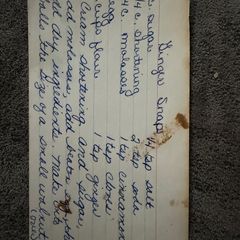 Ginger Snaps
c. sugar 1/4 tsp salt
4 c. shortening 2 tsp soda
4 c. molasses 1 tsp cinnamon
egg 1 tsp cloves
cups flour 1 tsp ginger
Cream shortening and sugar,
add molasses, add
dry ingredients. Make
balls the size of a small walnut
(over)